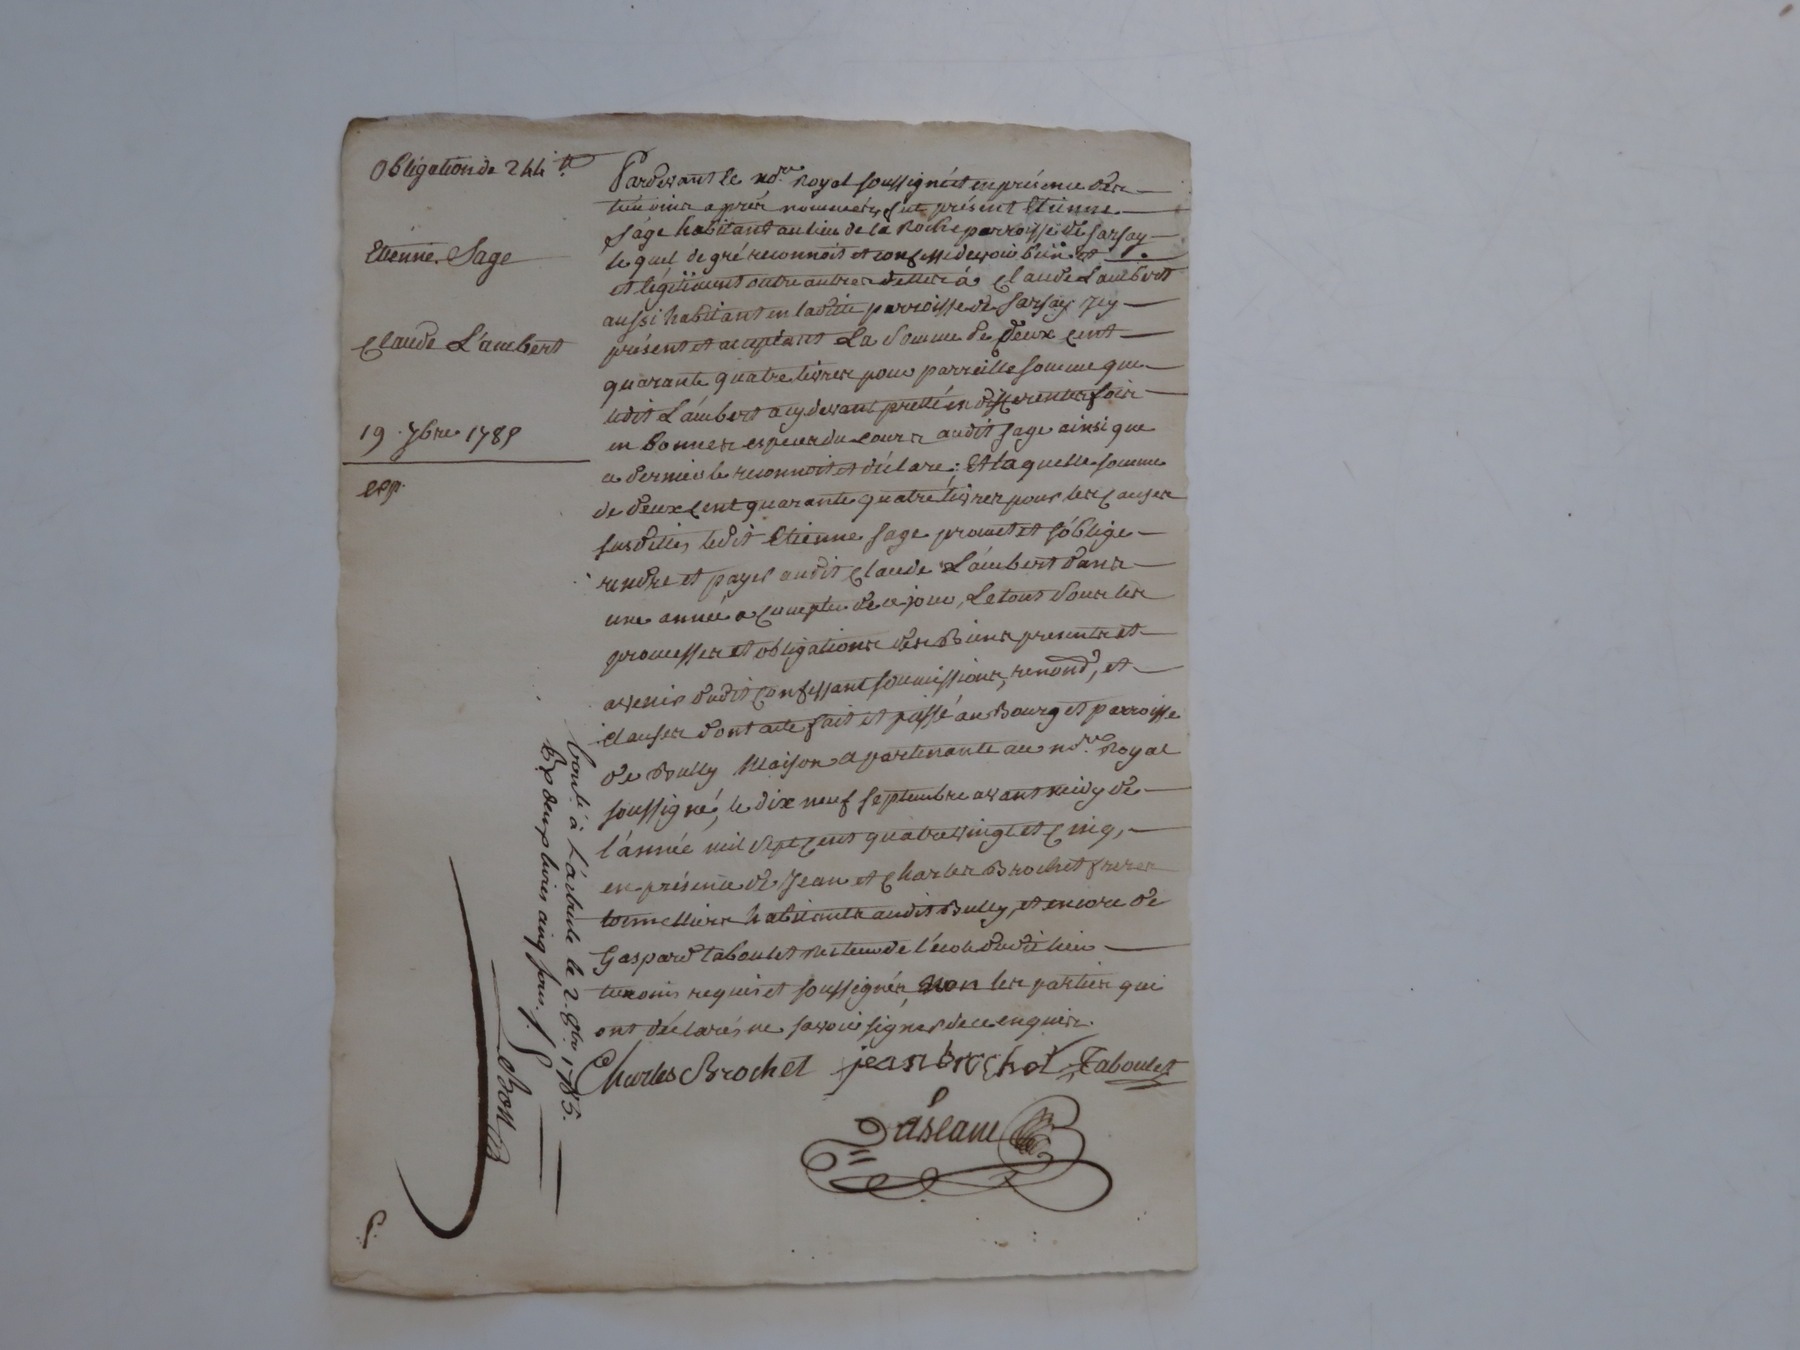 Obligation de 244ᵗᵗ
Etienne Sage
Claude Lambert
19. 7bre 1785
exp.
Pardevant le nore. Royal soussigné et en présence des
témoins après nommés, fut présent Etienne
Sage habitant au lieu de la Roche parroisse de Sarsay
lequel de gré reconnoit et confesse devoir bien et
et légitimement outre autres dettes à Claude Lambert
aussi habitant en ladite parroisse de Sarsay icy
présent et acceptant La Somme de Deux Cent
quarante quatre livres pour parreille somme que
ledit Lambert a cy devant pretté en differentes fois
en bonnes espèces du cours audit Sage ainsi que
ce dernier le reconnoit et déclare; Et laquelle somme
de deux Cent quarante quatre livres pour les Causes
susdittes ledit Etienne Sage promet et s'oblige
rendre et payer audit Claude Lambert dans
une année a Compter de ce jour, Le tout sous les
promesses et obligations des Biens presents et
avenir dudit Confessant soumissions, renond, et
clauses dont acte fait et passé au Bourg et parroisse
de Bully Maison apartenante au nore. Royal
soussigné, le dix neuf septembre avant midy de
l'année mil sept Cent quatre vingt et Cinq,
en présence de Jean et Charles Brochet freres
tonnelliers habitants audit Bully, et encore de
Gaspard Taboulet Recteur de l'école dudit lieu
temoins requis et soussignés, Non les parties qui
ont déclaré ne savoir signer de ce enquises.
Charles Brochet jean brochet Taboulet
Conté. à L'arbresle le 2. 8bre 1785.
Rp deux livres cinq sous.